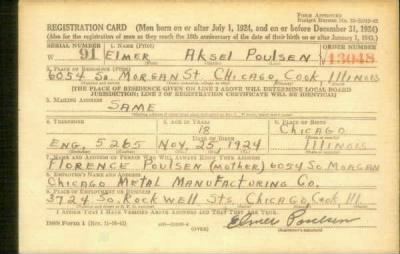 REGISTRATION CARD (Men born on or after July 1, 1924, and on or before December 31, 1924)
(Also for the registration of men as they reach the 18th anniversary of the date of their birth on or after January 1, 1943.)
SERIAL NUMBER 1. NAME (Print) ORDER NUMBER
W 91 Elmer Aksel Poulsen 13048
2. PLACE OF RESIDENCE (Print)
6054 So. Morgan St. Chicago, Cook, Illinois
[THE PLACE OF RESIDENCE GIVEN ON LINE 2 ABOVE WILL DETERMINE LOCAL BOARD
JURISDICTION; LINE 2 OF REGISTRATION CERTIFICATE WILL BE IDENTICAL]
3. MAILING ADDRESS
SAME
4. TELEPHONE 5. AGE IN YEARS 6. PLACE OF BIRTH
18 Chicago
DATE OF BIRTH
Eng. 5265 Nov. 25, 1924 Illinois
7. NAME AND ADDRESS OF PERSON WHO WILL ALWAYS KNOW YOUR ADDRESS
Florence Poulsen (mother) 6054 So. Morgan
Chicago Metal Manufacturing Co.
9. PLACE OF EMPLOYMENT OR BUSINESS
3724 So. Rockwell Sts. Chicago, Cook, Ill.
I AFFIRM THAT I HAVE VERIFIED ABOVE ANSWERS AND THAT THEY ARE TRUE.
DSS Form 1
(OVER)
Elmer Poulsen